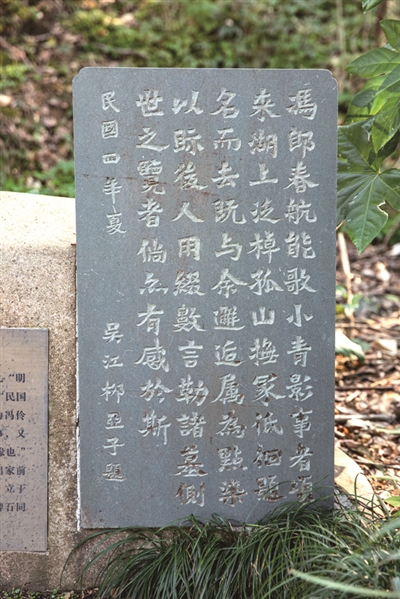 馮郎春航能歌小青影事者頃
來湖上泛棹孤山撫冢低徊題
名而去既与余邂逅屬為點染
以眎後人用綴數言勒諸墓側
世之覽者倘亦有感於斯
民國四年夏 吳江柳亞子題
“明
“民国
冯伶
，又
也”
前
立于
石同